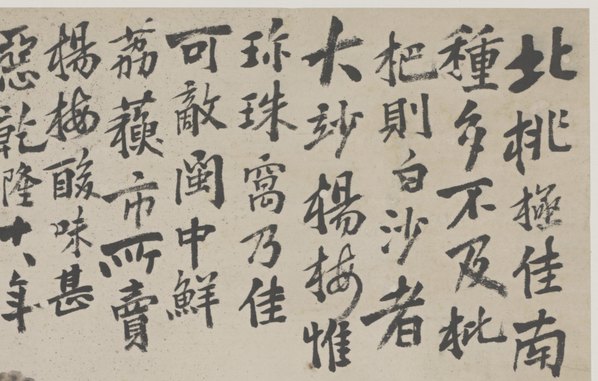 北桃極佳南
種多不及枇
杷則白沙者
大竗楊梅惟
珎珠窩乃佳
可敵閩中鮮
荔市所賣
楊梅酸味甚
惡乾隆十八年